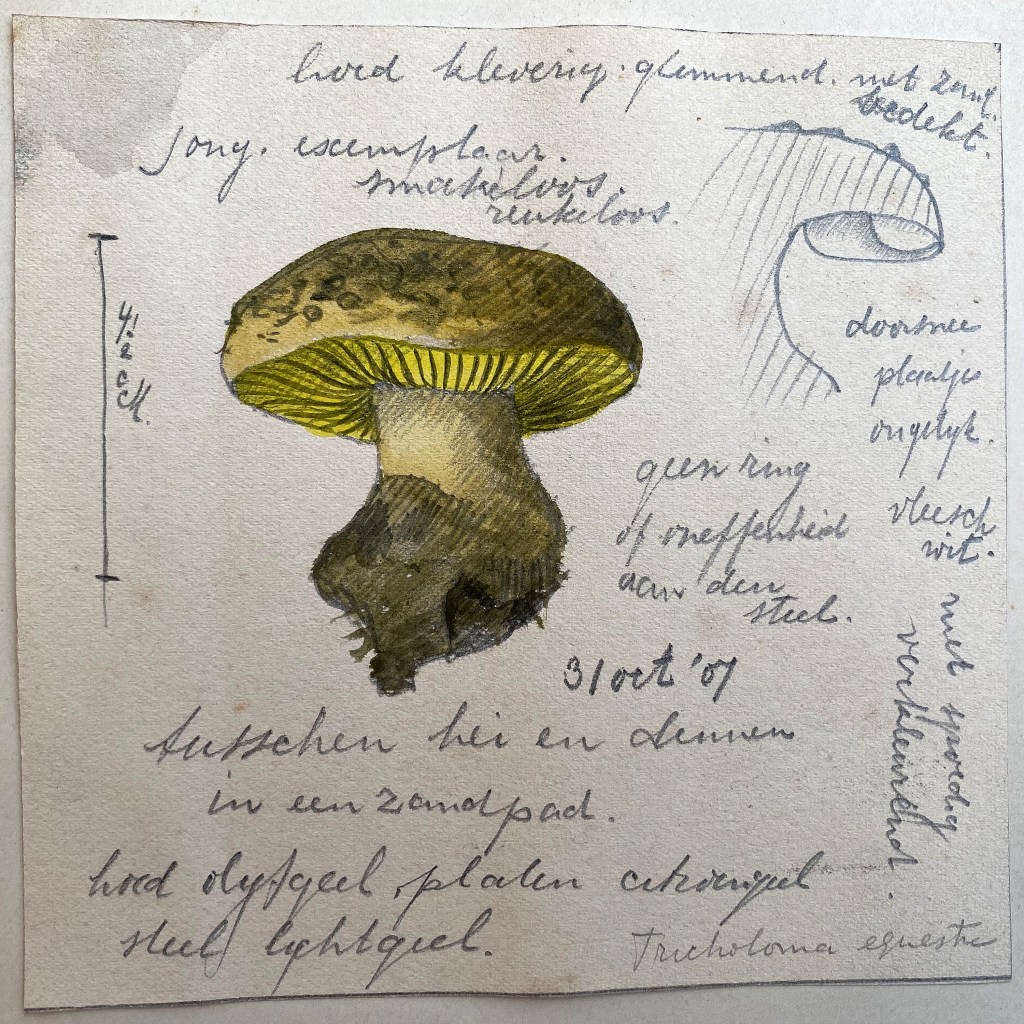 hoed kleverig. glimmend. met zand
bedekt.
jong. exemplaar.
smakeloos.
reukeloos.
4½ cM.
doorsnee
plaatjes
ongelijk.
vleesch
wit.
niet spoedig
verkleurend.
geen ring
of oneffenheid
aan den
steel.
31 oct '07
tusschen hei en dennen
in een zandpad.
hoed olijfgeel, platen citroengeel
steel lichtgeel.
Tricholoma equestre